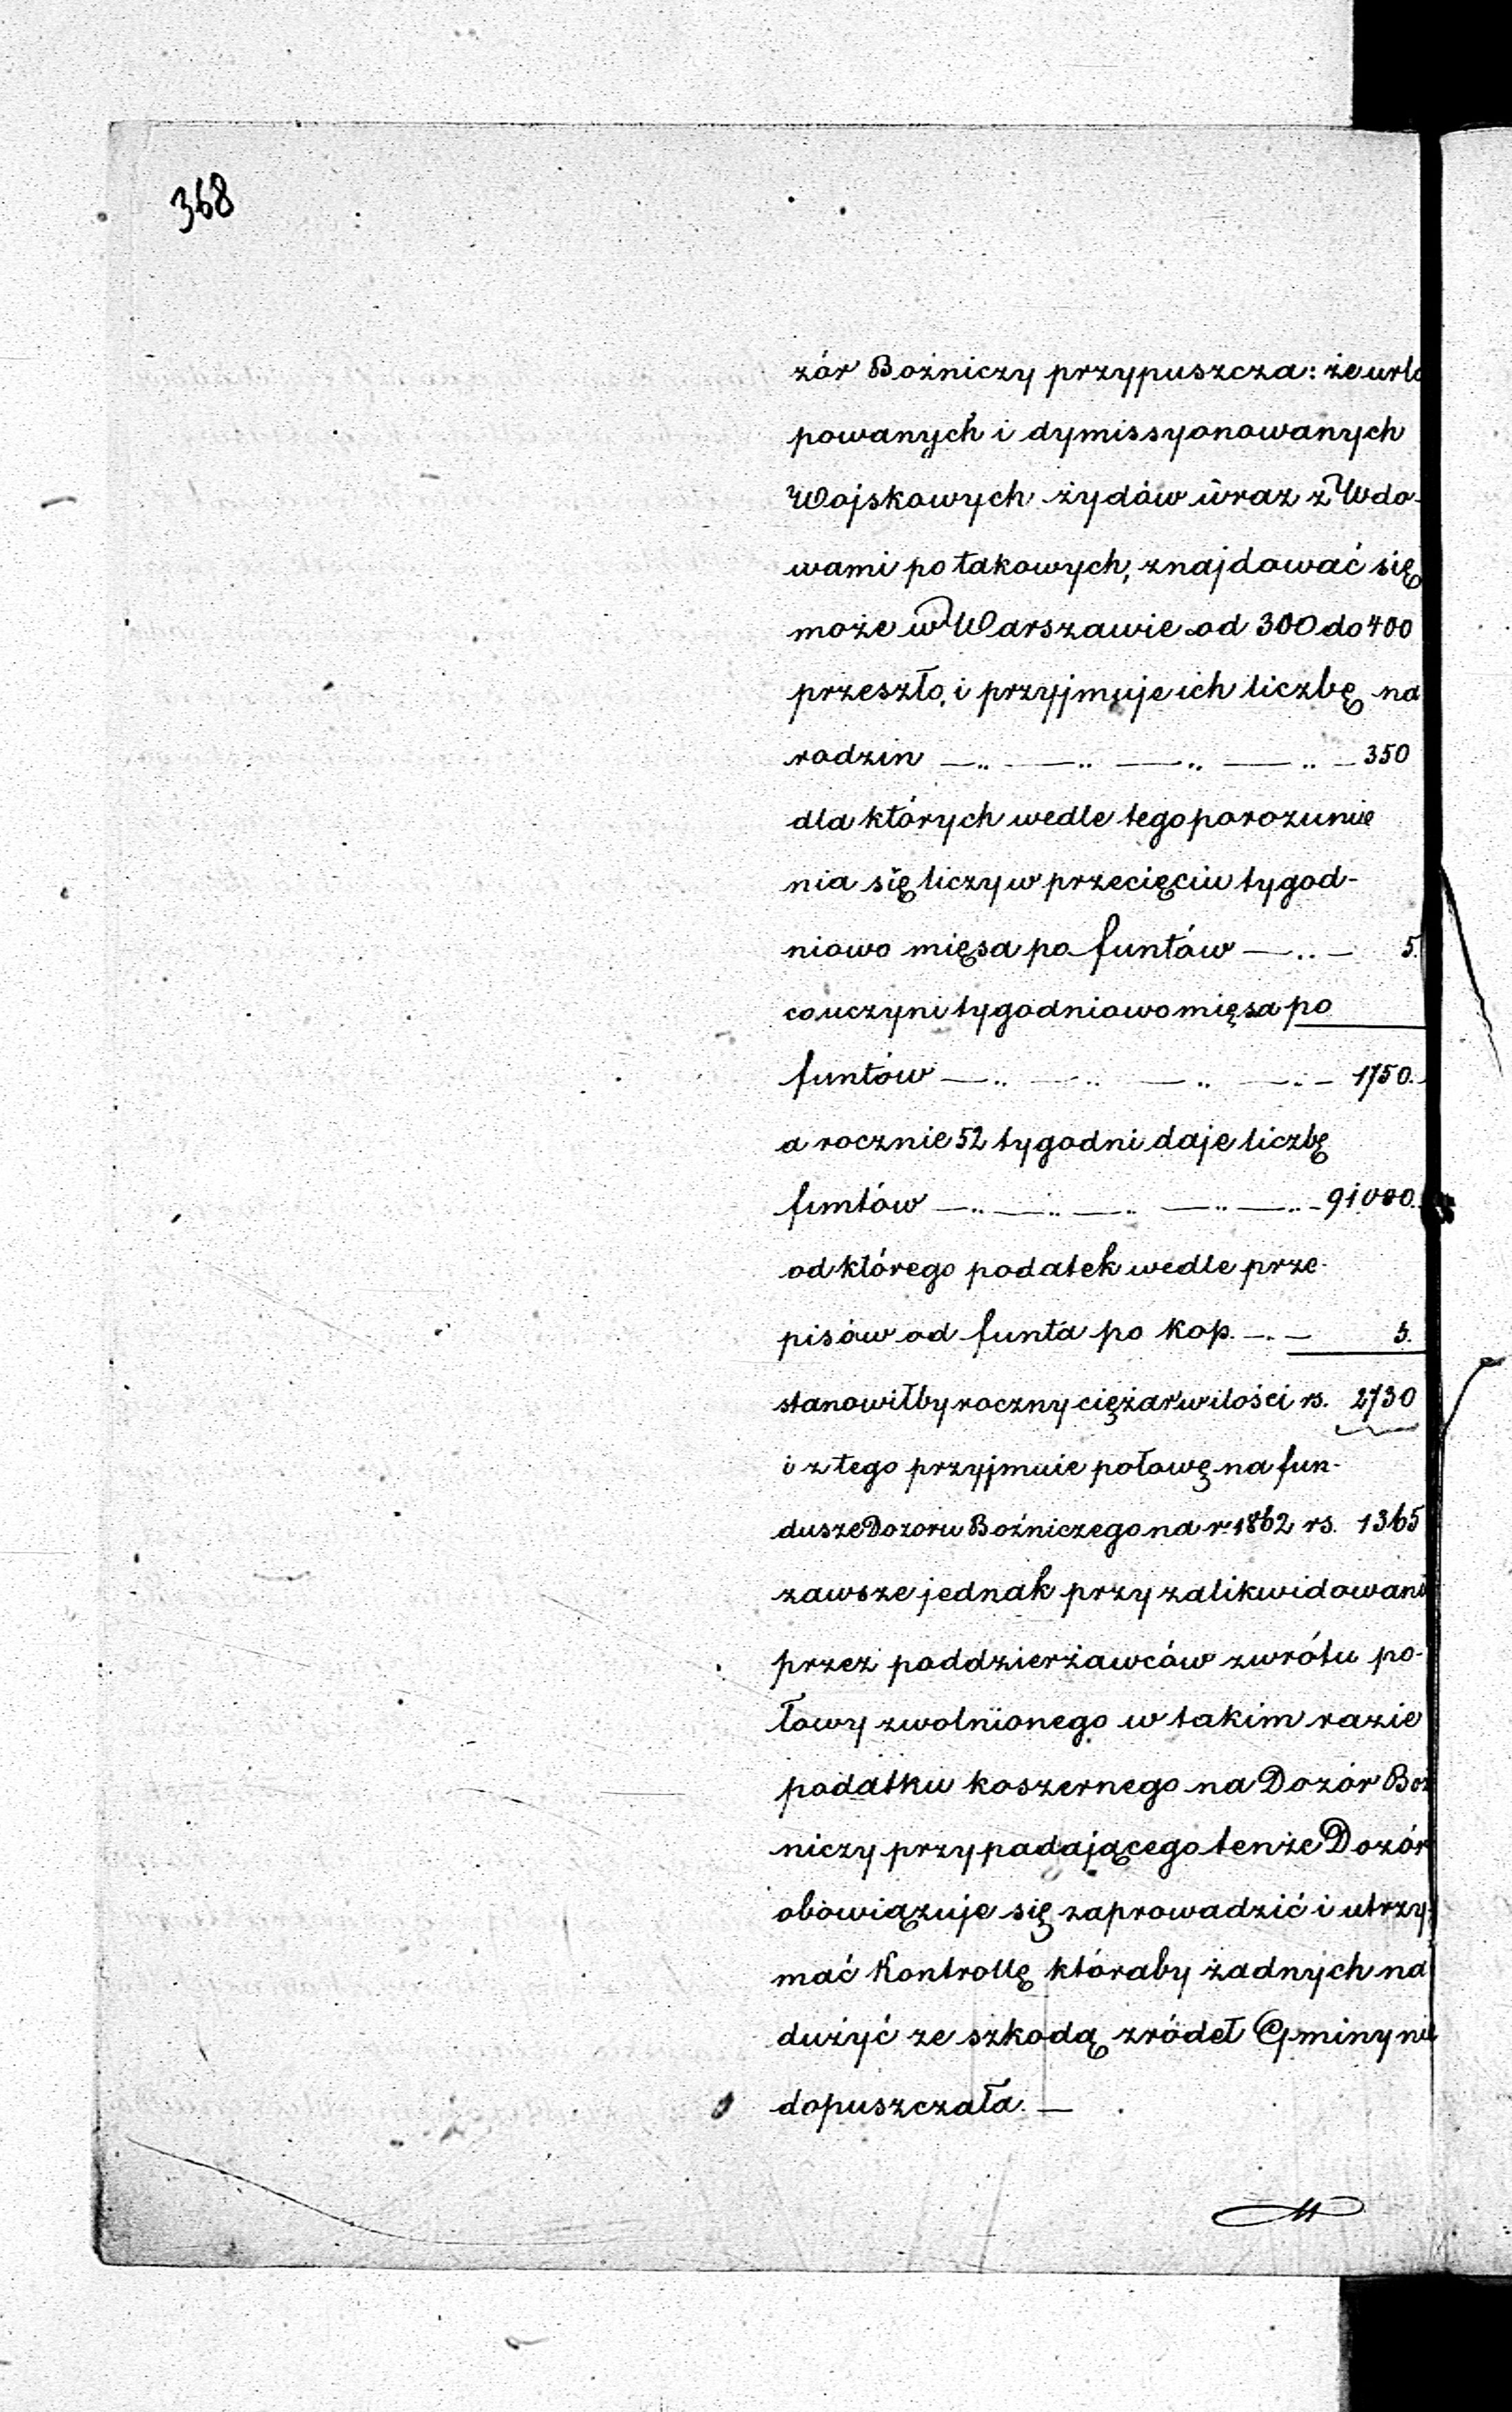 368
zór Bożniczy przypuszcza: że urlo
powanych i dymissyonowanych
Wojskowych żydów wraz z Wdo-
wami po takowych, znajdować się
może w Warszawie od 300 do 400
przeszło, i przyjmuje ich liczbę na
rodzin — .. — .. — .. — .. — 350
dla których wedle tego porozumie
nia się liczy w przecięciu tygod-
niowo mięsa po funtów — .. — 5.
co uczyni tygodniowo mięsa po
funtów — .. — .. — .. — .. — 1750.
a rocznie 52 tygodni daje liczbę
funtów — .. — .. — .. — .. — .. — 91000.
od którego podatek wedle prze-
pisów od funta po kop. — . — 3.
stanowiłby roczny ciężar w ilości rs. 2730
i z tego przyjmuie połowę na fun-
dusze Dozoru Bożniczego na r 1862 rs. 1365
zawsze jednak przy zalikwidowani
przez poddzierżawców zwrótu po-
łowy zwolnionego w takim razie
podatku koszernego na Dozór Boż
niczy przypadającego tenże Dozór
obowiązuje się zaprowadzić i utrzy-
mać Kontrollę któraby żadnych na
dużyć ze szkodą zródeł Gminy nie
dopuszczała. —